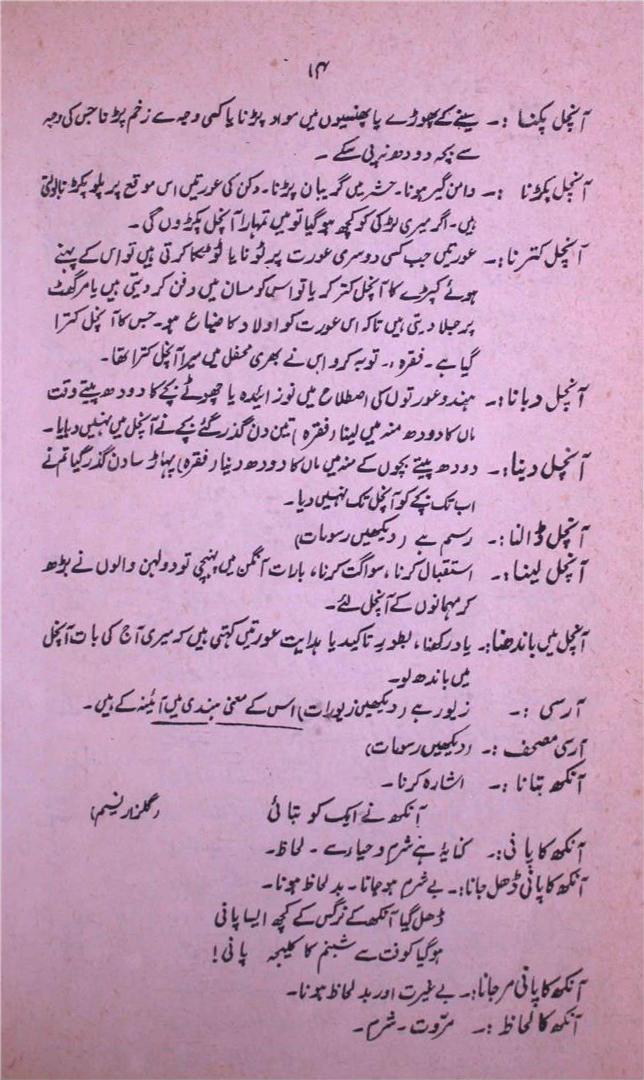 ۱۴
آنچل پکنا :۔ سینے کے پھوڑے یا پھنسیوں میں مواد پڑنا یا کسی وجہ سے زخم پڑنا جس کی وجہ
سے بچہ دودھ نہ پی سکے ۔
آنچل پکڑنا :۔ دامن گیر ہونا۔ حشر میں گریبان پڑنا۔ دکن کی عورتیں اس موقع پر پلو پکڑنا بولتی
ہیں۔ اگر میری لڑکی کو کچھ ہو گیا تو میں تمہارا آنچل پکڑوں گی۔
آنچل کترنا :۔ عورتیں جب کسی دوسری عورت پر ٹونا یا ٹوٹکا کرتی ہیں تو اس کے پہنے
ہوئے کپڑے کا آنچل کتر کر یا تو اس کو مسان میں دفن کر دیتی ہیں یا مرگھٹ
پر جلا دیتی ہیں تاکہ اس عورت کو اولاد کا ضیاع ہو۔ جس کا آنچل کترا
گیا ہے۔ فقرہ :۔ توبہ کرو اس نے بھری محفل میں میرا آنچل کترا تھا۔
آنچل دبانا :۔ ہندو عورتوں کی اصطلاح میں نوزائیدہ یا چھوٹے بچے کا دودھ پیتے وقت
ماں کا دودھ منہ میں لینا (فقرہ) تین دن گذر گئے بچے نے آنچل میں نہیں دبایا۔
آنچل دینا :۔ دودھ پیتے بچوں کے منہ میں ماں کا دودھ دینا (فقرہ) پہاڑ سا دن گذر گیا تم نے
اب تک بچے کو آنچل تک نہیں دیا۔
آنچل ڈالنا :۔ رسم ہے (دیکھیں رسومات)
آنچل لینا :۔ استقبال کرنا، سواگت کرنا، بارات آنگن میں پہنچی تو دولہن والوں نے بڑھ
کر مہمانوں کے آنچل لئے۔
آنچل میں باندھنا :۔ یاد رکھنا، بطور تاکید یا ہدایت عورتیں کہتی ہیں کہ میری آج کی بات آنچل
میں باندھ لو۔
آرسی :۔ زیور ہے (دیکھیں زیورات) اس کے معنی ہندی میں آئینہ کے ہیں۔
آرسی مصحف :۔ (دیکھیں رسومات)
آنکھ بتانا :۔ اشارہ کرنا۔
آنکھ نے ایک کو بتائی (گلزار نسیم)
آنکھ کا پانی :۔ کنایۃً ہے شرم و حیا سے ۔ لحاظ۔
آنکھ کا پانی ڈھل جانا :۔ بے شرم ہو جانا۔ بد لحاظ ہونا۔
ڈھل گیا آنکھ کے نرگس کے کچھ ایسا پانی
ہو گیا کوفت سے شبنم کا کلیجہ پانی !
آنکھ کا پانی مر جانا :۔ بے غیرت اور بد لحاظ ہونا۔
آنکھ کا لحاظ :۔ مروّت۔ شرم۔